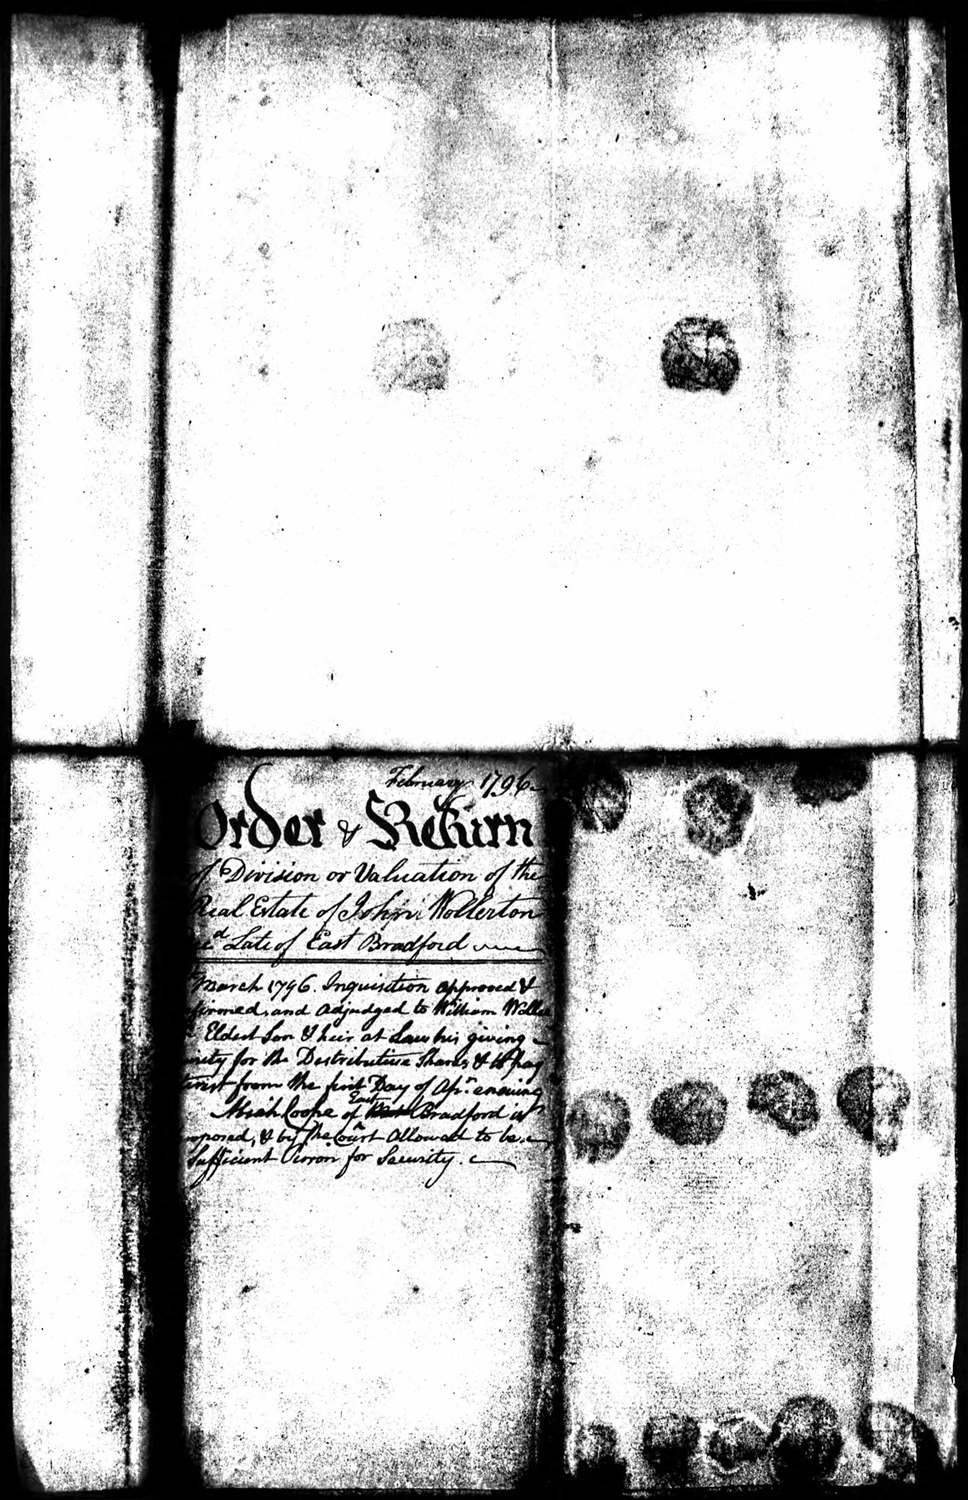 February 1796.
Order & Return
of Division or Valuation of the
Real Estate of John Wollerton
Late of East Bradford
March 1796. Inquisition approved &
and adjudged to William
Eldest Son & heir at Law his giving
for the Distributive Shares, & to pay
from the first Day of Apr. ensuing
of East Bradford is
& by the Court Allowed to be a
Sufficient for Security.